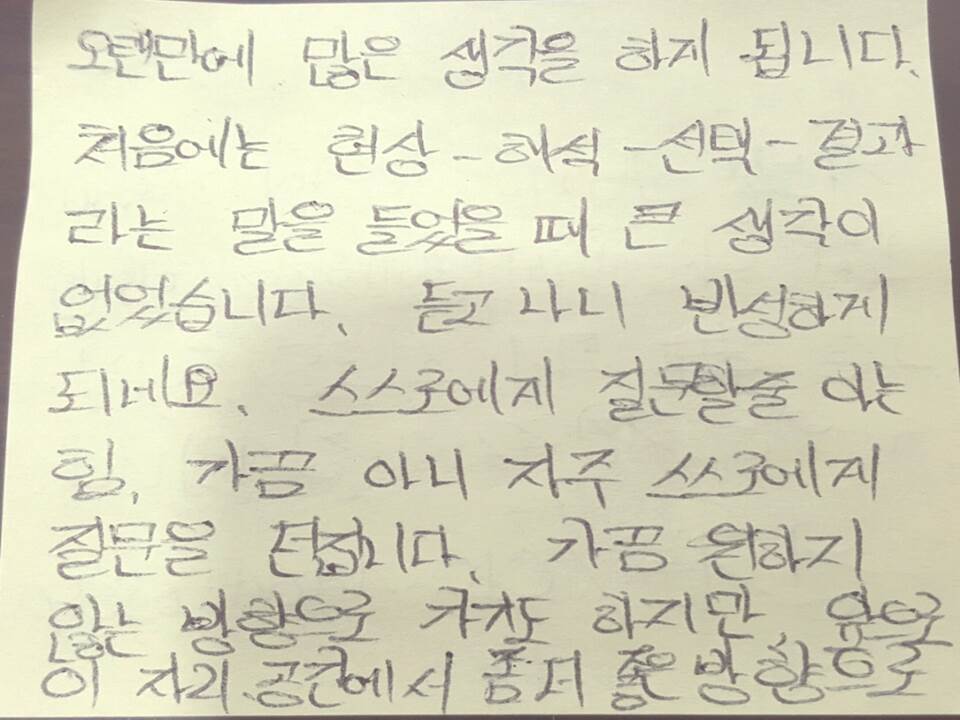 오랜만에 많은 생각을 하게 됩니다.
처음에는 현상 - 해석 - 선택 - 결과
라는 말을 들었을 때 큰 생각이
없었습니다. 듣고 나니 반성하게
되네요. 스스로에게 질문할줄 아는
힘. 가끔 아니 자주 스스로에게
질문을 던집니다. 가끔 원하지
않는 방향으로 가기도 하지만, 앞으로
이 자리 공간에서 좀 더 좋은 방향으로